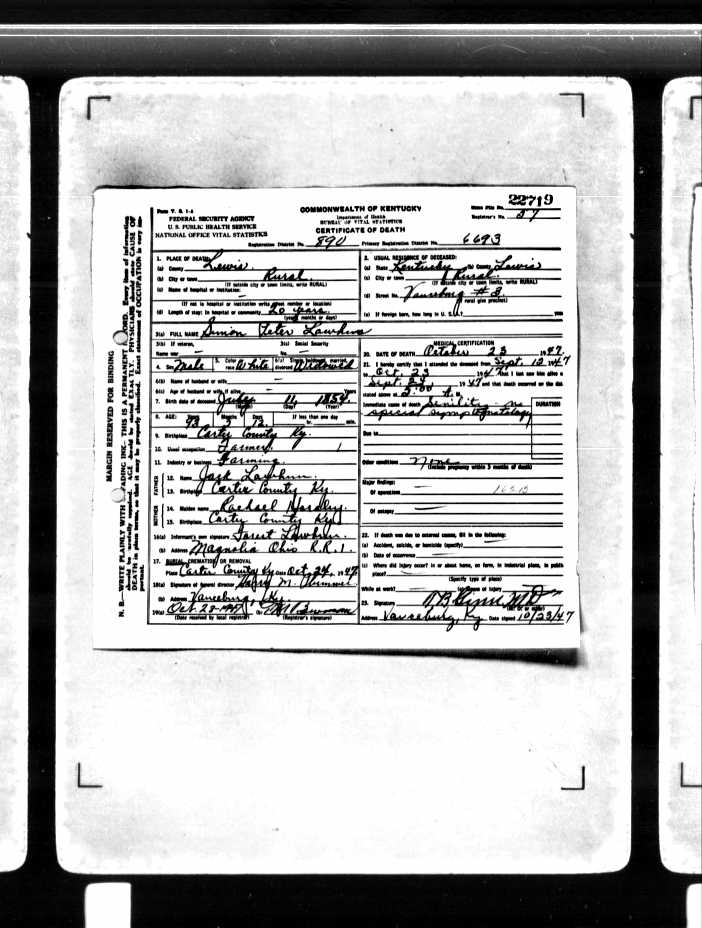 Form V. S. 1-A
COMMONWEALTH OF KENTUCKY
State File No. 22719
FEDERAL SECURITY AGENCY
Department of Health
Registrar's No. 27
U. S. PUBLIC HEALTH SERVICE
BUREAU OF VITAL STATISTICS
NATIONAL OFFICE VITAL STATISTICS
CERTIFICATE OF DEATH
Registration District No. 890 Primary Registration District No. 6693
MARGIN RESERVED FOR BINDING
1. PLACE OF DEATH:
(a) County Lewis
(b) City or town Rural
(If outside city or town limits, write RURAL)
(c) Name of hospital or institution:
(If not in hospital or institution write street number or location)
(d) Length of stay: In hospital or community 20 years
(years, months or days)
2. USUAL RESIDENCE OF DECEASED:
(a) State Kentucky (b) County Lewis
(c) City or town Rural
(If outside city or town limits, write RURAL)
(d) Street No. Vanceburg # 3
(If rural give precinct)
(e) If foreign born, how long in U. S. A.? years
3(a) FULL NAME Simon Peter Lawhun
3(b) If veteran, 3(c) Social Security
Name war — No. —
4. Sex Male 5. Color or race White 6(a) Single, widowed, married, divorced Widowed
6(b) Name of husband or wife —
6(c) Age of husband or wife, if alive — Years
7. Birth date of deceased July 11, 1854
(Month) (Day) (Year)
8. AGE: Years Months Days If less than one day
93 3 12 hr. min.
9. Birthplace Carter County Ky.
10. Usual occupation Farmer
11. Industry or business Farming
FATHER
12. Name Jack Lawhun
13. Birthplace Carter County Ky.
MOTHER
14. Maiden name Rachael
15. Birthplace Carter County Ky.
16(a) Informant's own signature Lawhun
(b) Address Magnolia Ohio R.R.1.
17. BURIAL, CREMATION OR REMOVAL
Place Carter County Ky Date Oct. 24, 1947
18(a) Signature of funeral director Harry M.
(b) Address Vanceburg, Ky.
19(a) Oct. 28-1947 (b)
(Date received by local registrar) (Registrar's signature)
MEDICAL CERTIFICATION
20. DATE OF DEATH October 23 1947.
21. I hereby certify that I attended the deceased from Sept. 12 1947
to Oct. 23 1947 that I last saw him alive on
Sept. 1947 and that death occurred on the date
stated above at 5:00 A. M.
Immediate cause of death Senility - no
special symptomatology
DURATION
Due to
Other conditions None
(Include pregnancy within 3 months of death)
Major findings:
Of operations —
Of autopsy —
22. If death was due to external cause, fill in the following:
(a) Accident, suicide, or homicide (specify)
(b) Date of occurrence
(c) Where did injury occur? in or about home, on farm, in industrial place, in public
place?
(Specify type of place)
While at work? (e) Means of injury
23. Signature MD
(M. D. or other)
Address Vanceburg, Ky Date signed 10/23/47